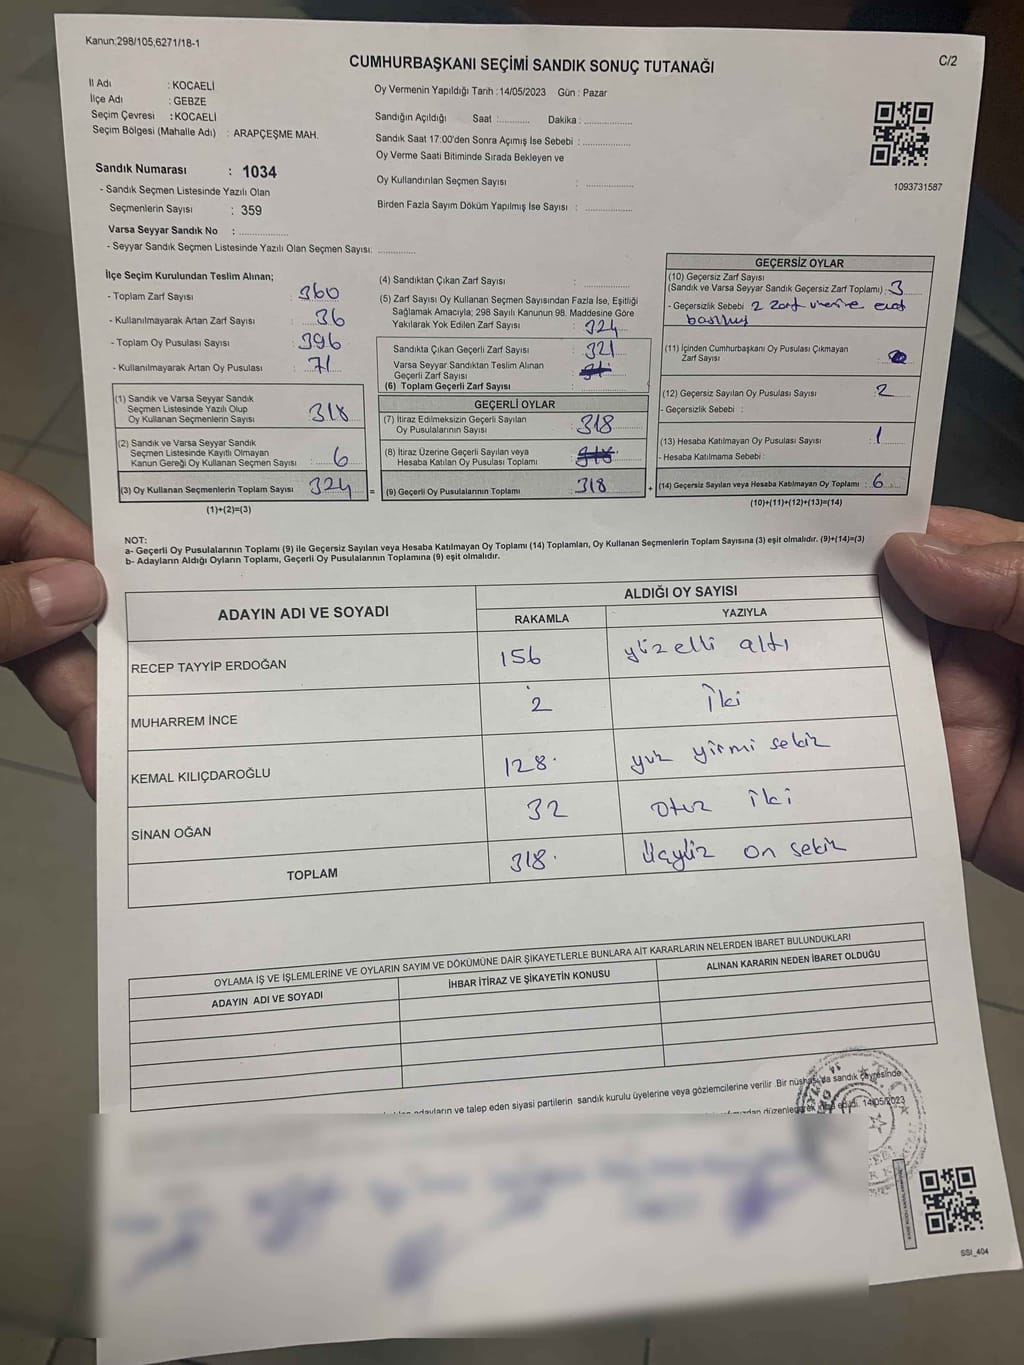 Kanun;298/105,6271/18-1
C/2
CUMHURBAŞKANI SEÇİMİ SANDIK SONUÇ TUTANAĞI
İl Adı : KOCAELİ
İlçe Adı : GEBZE
Seçim Çevresi : KOCAELİ
Seçim Bölgesi (Mahalle Adı) : ARAPÇEŞME MAH.
Sandık Numarası : 1034
- Sandık Seçmen Listesinde Yazılı Olan
Seçmenlerin Sayısı : 359
Varsa Seyyar Sandık No : ..............
- Seyyar Sandık Seçmen Listesinde Yazılı Olan Seçmen Sayısı: ............
Oy Vermenin Yapıldığı Tarih :14/05/2023 Gün : Pazar
Sandığın Açıldığı Saat :.......... Dakika : ..............
Sandık Saat 17:00'den Sonra Açımış İse Sebebi : ..............
Oy Verme Saati Bitiminde Sırada Bekleyen ve
Oy Kullandırılan Seçmen Sayısı : ..............
Birden Fazla Sayım Döküm Yapılmış İse Sayısı : ..............
1093731587
İlçe Seçim Kurulundan Teslim Alınan;
- Toplam Zarf Sayısı : 360
- Kullanılmayarak Artan Zarf Sayısı : 36
- Toplam Oy Pusulası Sayısı : 396
- Kullanılmayarak Artan Oy Pusulası : 71
(1) Sandık ve Varsa Seyyar Sandık
Seçmen Listesinde Yazılı Olup
Oy Kullanan Seçmenlerin Sayısı : 318
(2) Sandık ve Varsa Seyyar Sandık
Seçmen Listesinde Kayıtlı Olmayan
Kanun Gereği Oy Kullanan Seçmen Sayısı : 6
(3) Oy Kullanan Seçmenlerin Toplam Sayısı : 324 =
(1)+(2)=(3)
(4) Sandıktan Çıkan Zarf Sayısı : ..............
(5) Zarf Sayısı Oy Kullanan Seçmen Sayısından Fazla İse, Eşitliği
Sağlamak Amacıyla; 298 Sayılı Kanunun 98. Maddesine Göre
Yakılarak Yok Edilen Zarf Sayısı : 324
Sandıkta Çıkan Geçerli Zarf Sayısı : 321
Varsa Seyyar Sandıktan Teslim Alınan
Geçerli Zarf Sayısı
(6) Toplam Geçerli Zarf Sayısı :
GEÇERLİ OYLAR
(7) İtiraz Edilmeksizin Geçerli Sayılan
Oy Pusulalarının Sayısı : 318
(8) İtiraz Üzerine Geçerli Sayılan veya
Hesaba Katılan Oy Pusulası Toplamı : 318
(9) Geçerli Oy Pusulalarının Toplamı : 318 +
GEÇERSİZ OYLAR
(10) Geçersiz Zarf Sayısı
(Sandık ve Varsa Seyyar Sandık Geçersiz Zarf Toplamı) : 3
- Geçersizlik Sebebi : 2 zarf üzerine evet
basılmış
(11) İçinden Cumhurbaşkanı Oy Pusulası Çıkmayan
Zarf Sayısı
(12) Geçersiz Sayılan Oy Pusulası Sayısı : 2
- Geçersizlik Sebebi :
(13) Hesaba Katılmayan Oy Pusulası Sayısı : 1
- Hesaba Katılmama Sebebi :
(14) Geçersiz Sayılan veya Hesaba Katılmayan Oy Toplamı : 6
(10)+(11)+(12)+(13)=(14)
NOT:
a- Geçerli Oy Pusulalarının Toplamı (9) ile Geçersiz Sayılan veya Hesaba Katılmayan Oy Toplamı (14) Toplamları, Oy Kullanan Seçmenlerin Toplam Sayısına (3) eşit olmalıdır. (9)+(14)=(3)
b- Adayların Aldığı Oyların Toplamı, Geçerli Oy Pusulalarının Toplamına (9) eşit olmalıdır.
ADAYIN ADI VE SOYADI ALDIĞI OY SAYISI
RAKAMLA YAZIYLA
RECEP TAYYİP ERDOĞAN 156 yüz elli altı
MUHARREM İNCE 2 İki
KEMAL KILIÇDAROĞLU 128 yüz yirmi sekiz
SİNAN OĞAN 32 otuz iki
TOPLAM 318 Üçyüz on sekiz
OYLAMA İŞ VE İŞLEMLERİNE VE OYLARIN SAYIM VE DÖKÜMÜNE DAİR ŞİKAYETLERLE BUNLARA AİT KARARLARIN NELERDEN İBARET BULUNDUKLARI
ADAYIN ADI VE SOYADI İHBAR İTİRAZ VE ŞİKAYETİN KONUSU ALINAN KARARIN NEDEN İBARET OLDUĞU
adayların ve talep eden siyasi partilerin sandık kurulu üyelerine veya gözlemcilerine verilir. Bir nüshası da sandık çevresinde
düzenlenerek imza edildi. 14/05/2023
SSI_404